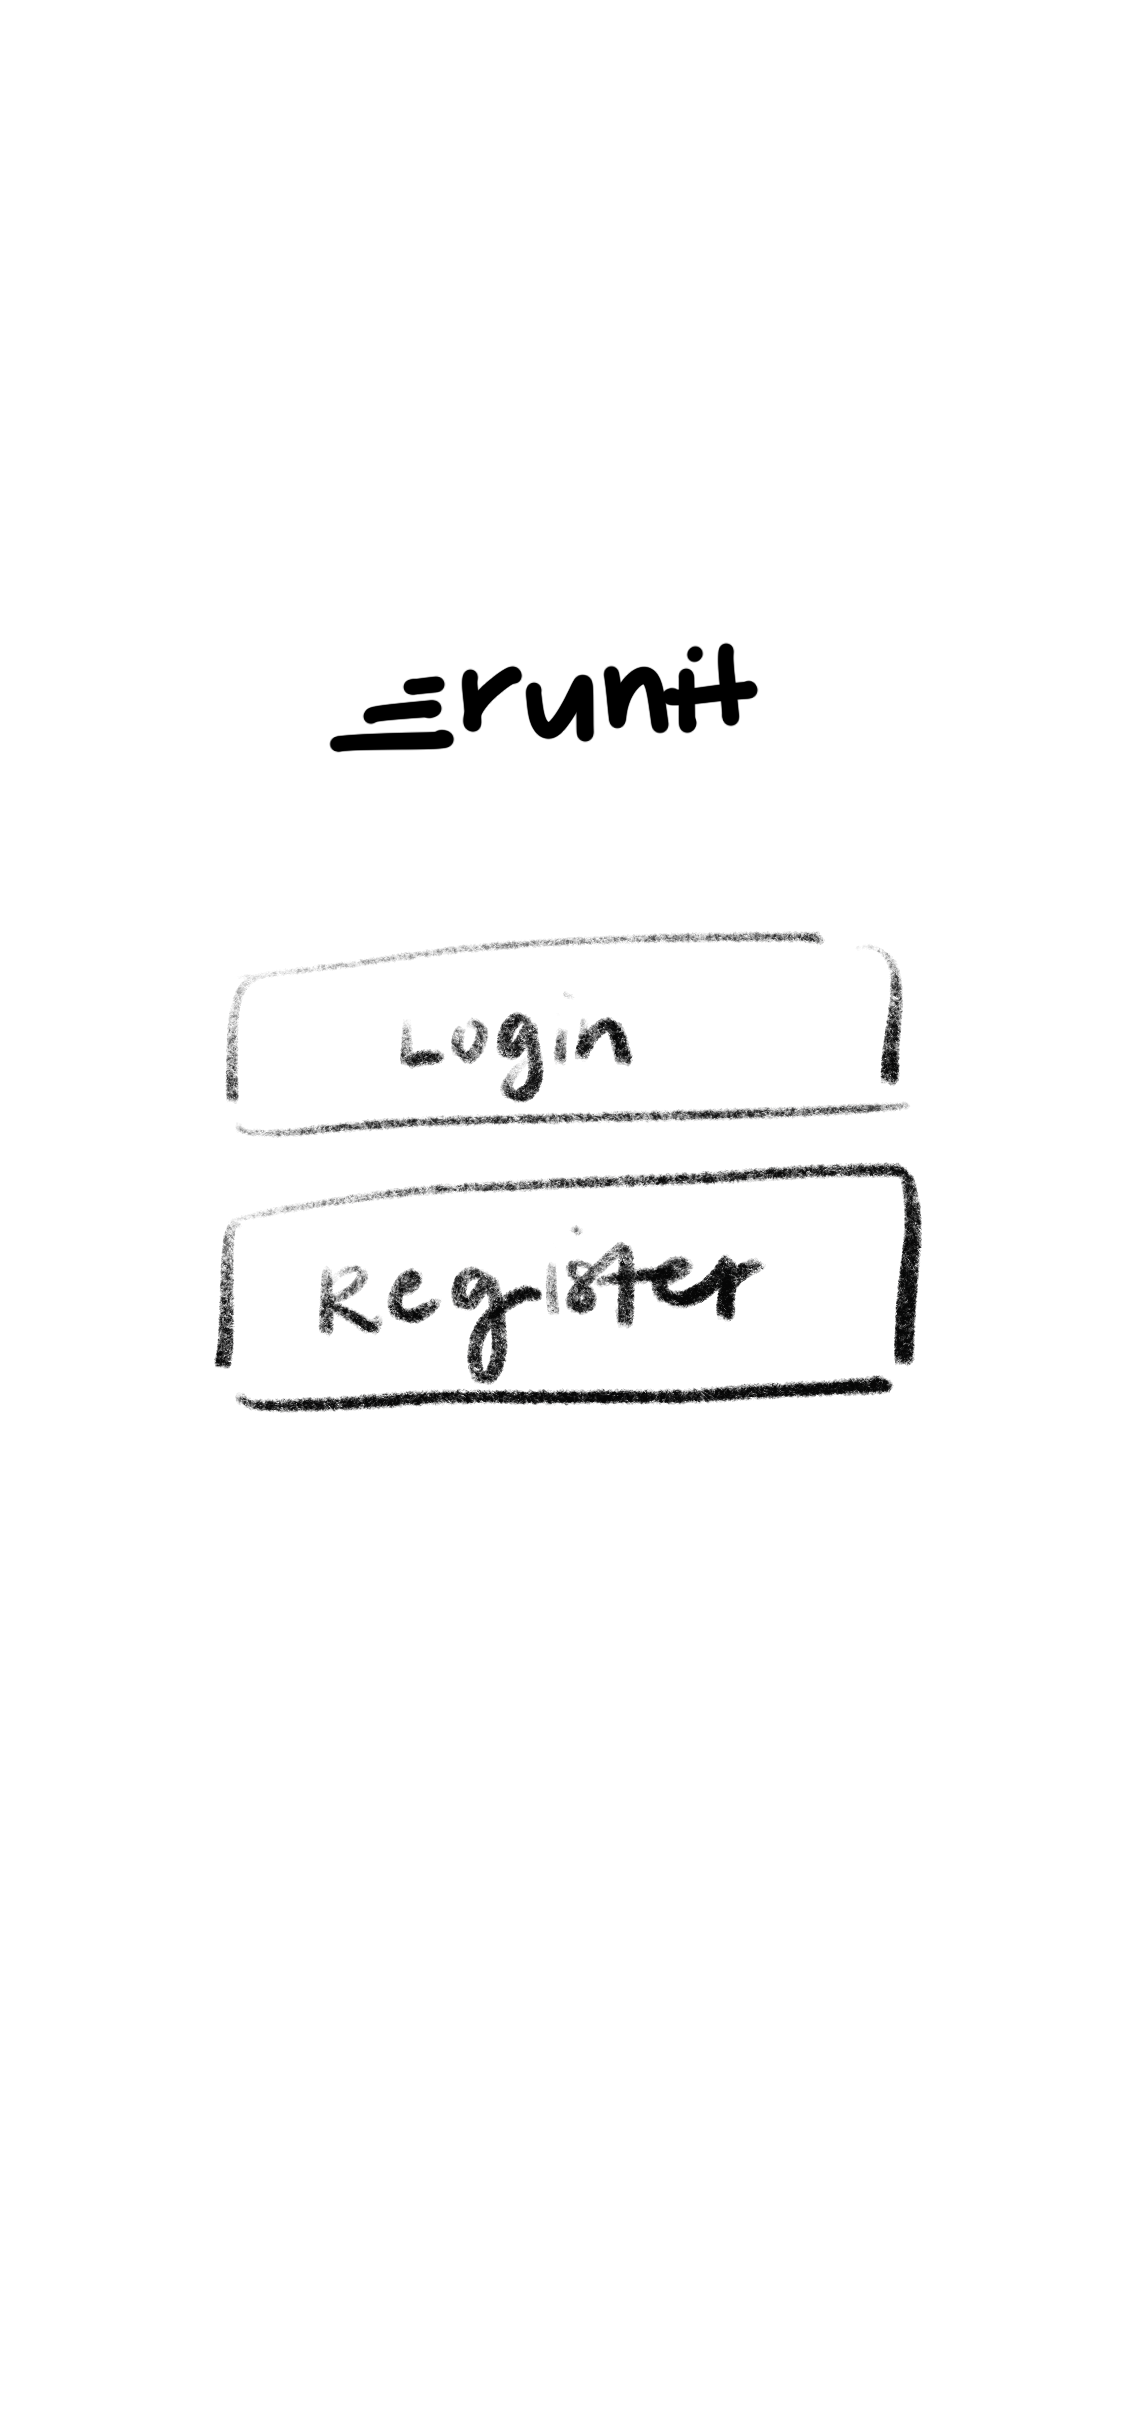 runit
Login
Register